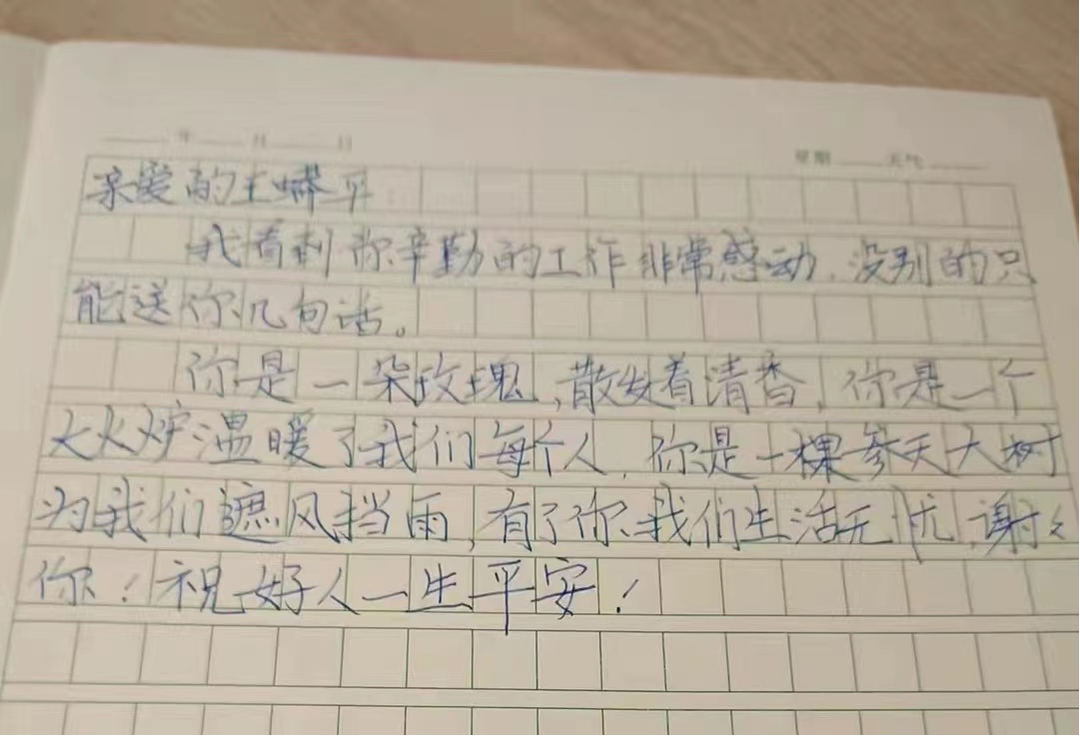 年 月 日
星期 天气
亲爱的王嶙平
我看到你辛勤的工作非常感动,没别的只
能送你几句话。
你是一朵玫瑰,散发着清香,你是一个
大火炉温暖了我们每个人,你是一棵参天大树
为我们遮风挡雨,有了你我们生活无忧,谢々
你!祝好人一生平安!